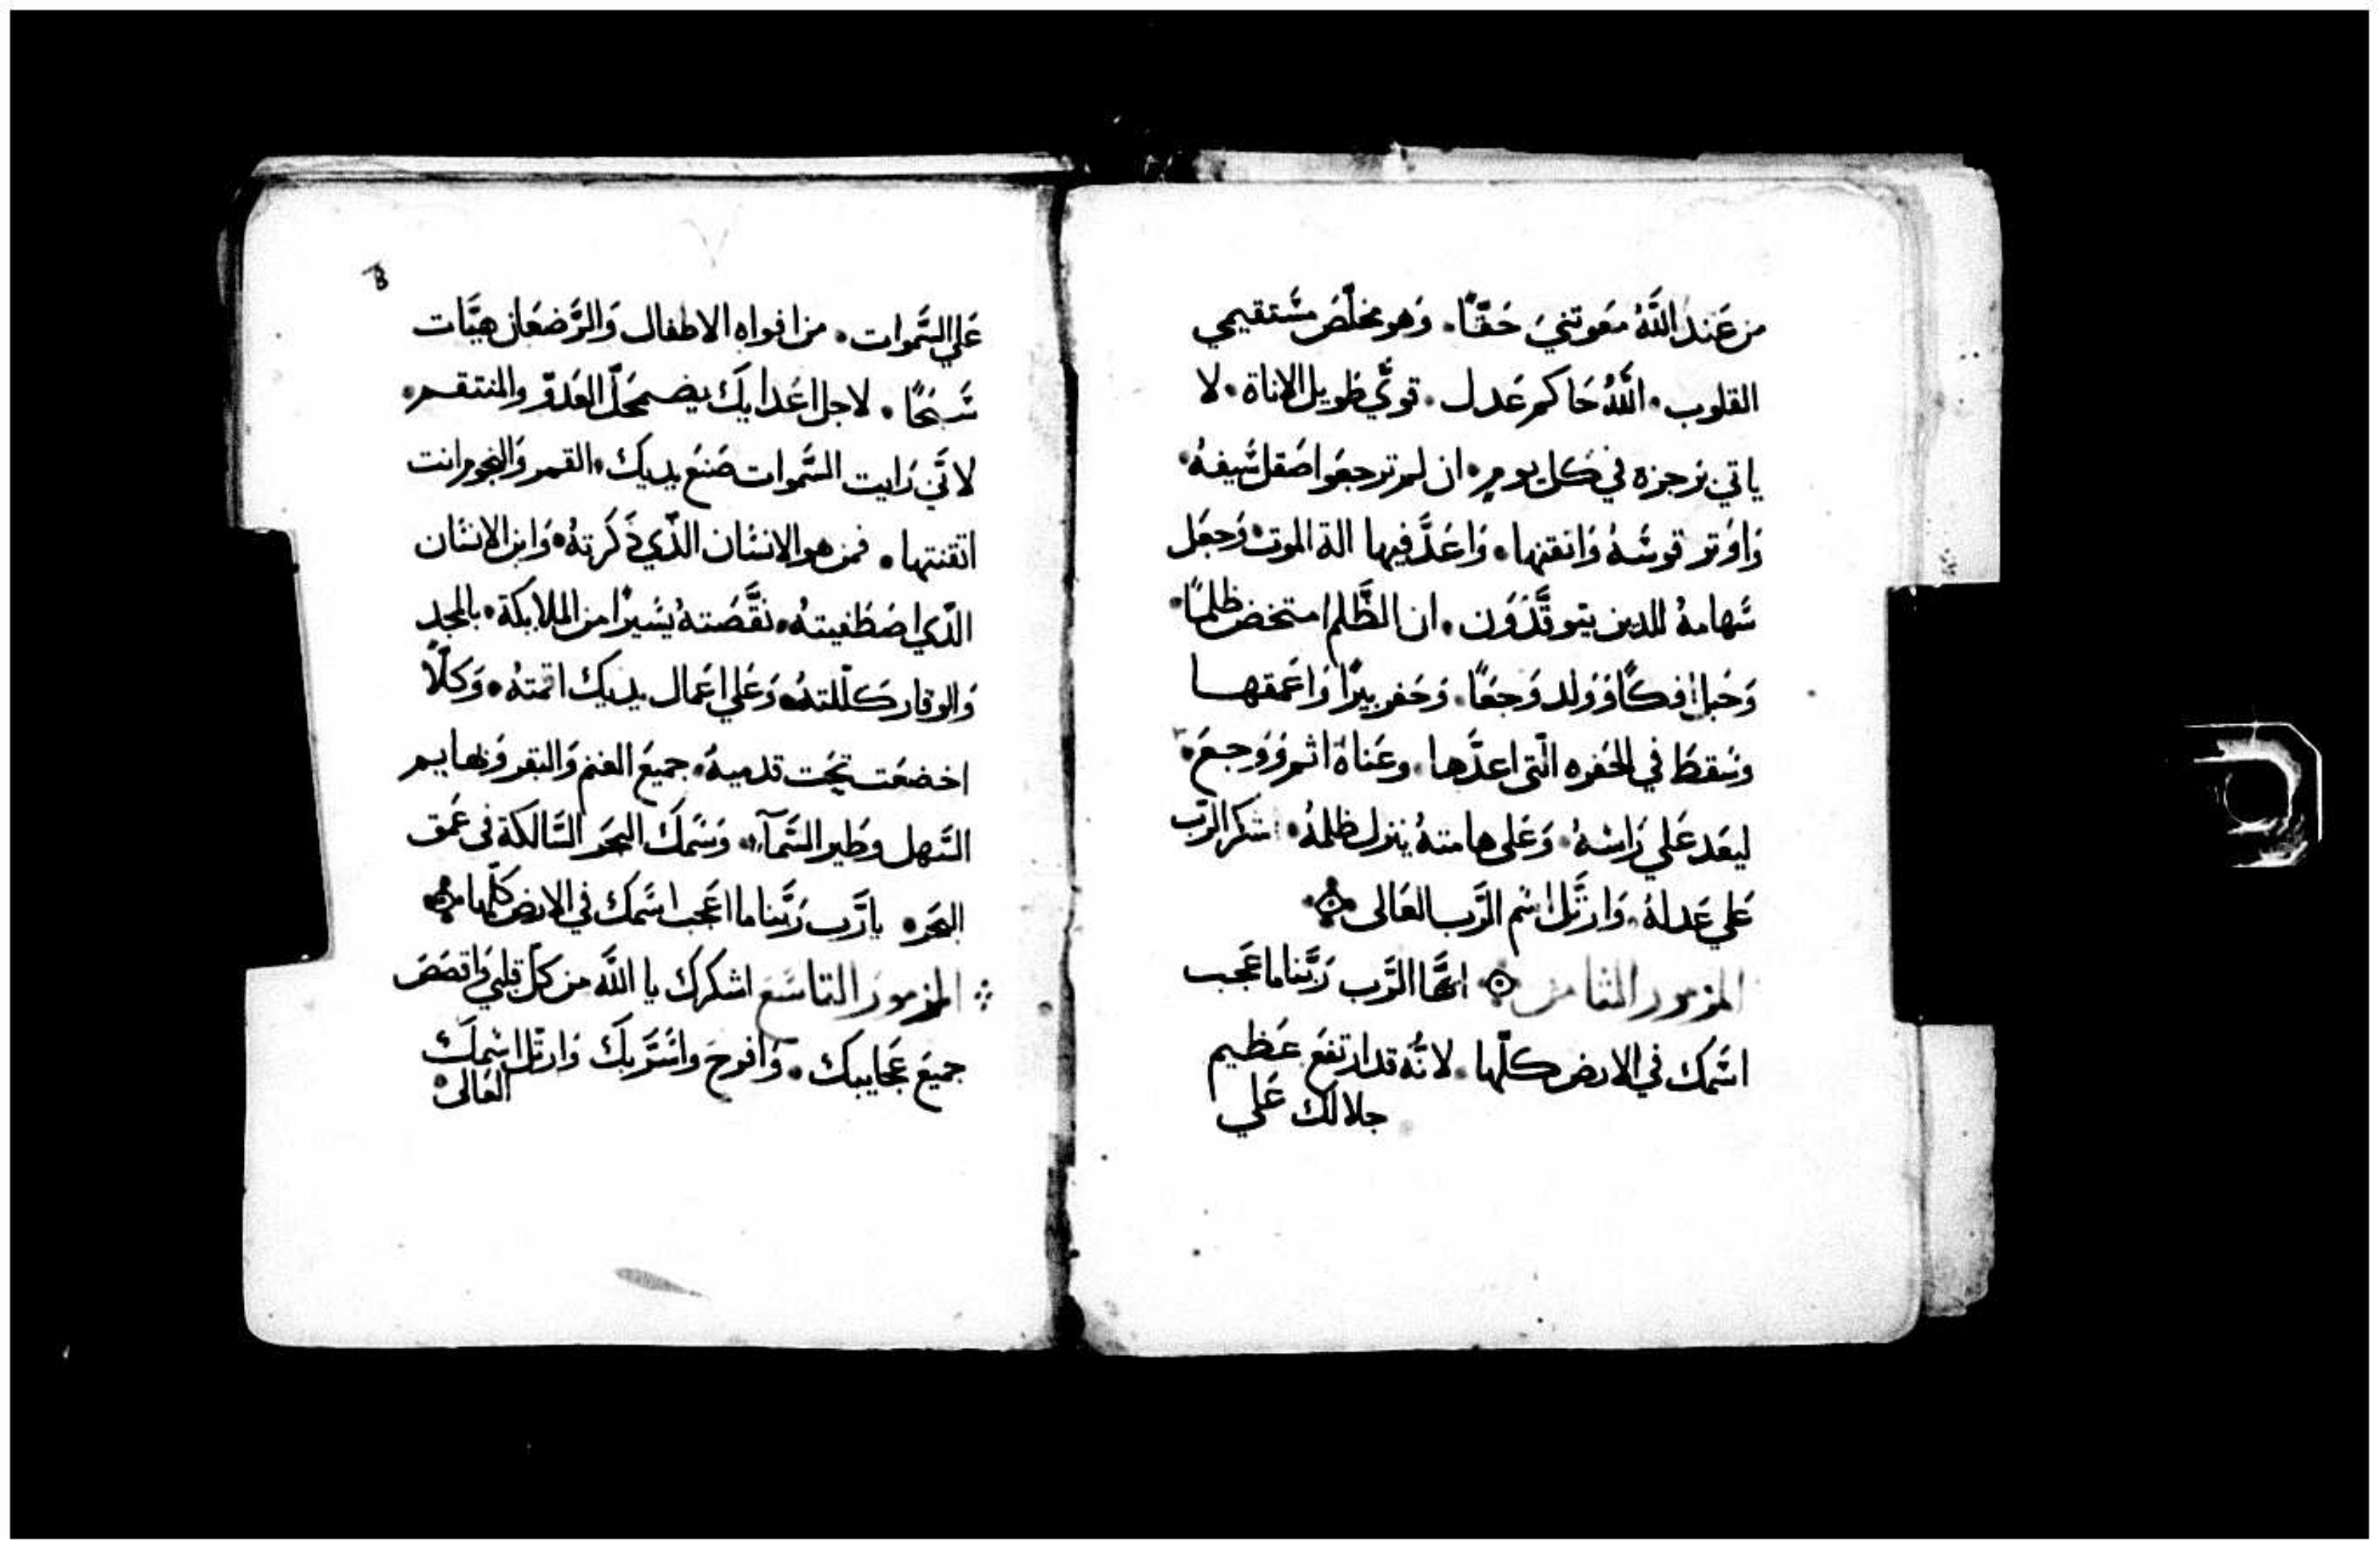 من عند اللّه معونتي حقًّا. وهو مخلّص مستقيمي
القلوب. اللّه حاكم عدل. قوي طويل الاناة. لا
ياتي برجزه في كل يوم. ان لم ترجعوا صقل سيفه.
واوتر قوسه واتقنها. واعدّ فيها الة الموت. وجعل
سهامه للدين يتوقّدون. ان الظّلم امتخض ظلمًا.
وحبل افكًا وولد وجعًا. وحفر بيرًا واعمقها
وسقط في الحفره الّتي اعدّها. وعناة اثم ووجع.
ليعد على راسه. وعلى هامته ينزل ظلمه. اشكر الرّب
على عدله. وارتّل اسم الرّب العالى
المزمور الثامن ايّها الرّب ربّنا ما عجب
اسمك في الارض كلّها. لانّه قد ارتفع عظيم
جلالك على
على السّموات. من افواه الاطفال والرّضعان هيّات
سبحًا. لاجل اعدايك يضمحلّ العدوّ والمنتقم.
لانّي رايت السّموات صنع يديك. القمر والنجوم انت
اتقنتها. فمن هو الانسان الّذي ذكرته. وابن الانسان
الّذي اصطفيته. نقّصته يسيرًا من الملايكة. بالمجد
والوقار كلّلته. وعلى اعمال يديك اقمته. وكلًّا
اخضعت تحت قدميه. جميع الغنم والبقر وبهايم
السّهل وطير السّمآء. وسمك البحر السّالكة في عمق
البحر. يا رّب ربّنا ما اعجب اسمك في الارض كلّها
المزمور التاسع اشكرك يا اللّه من كلّ قلبي واقصص
جميع عجايبك. وافرح واسرّ بك وارتّل اسمك
العالى.